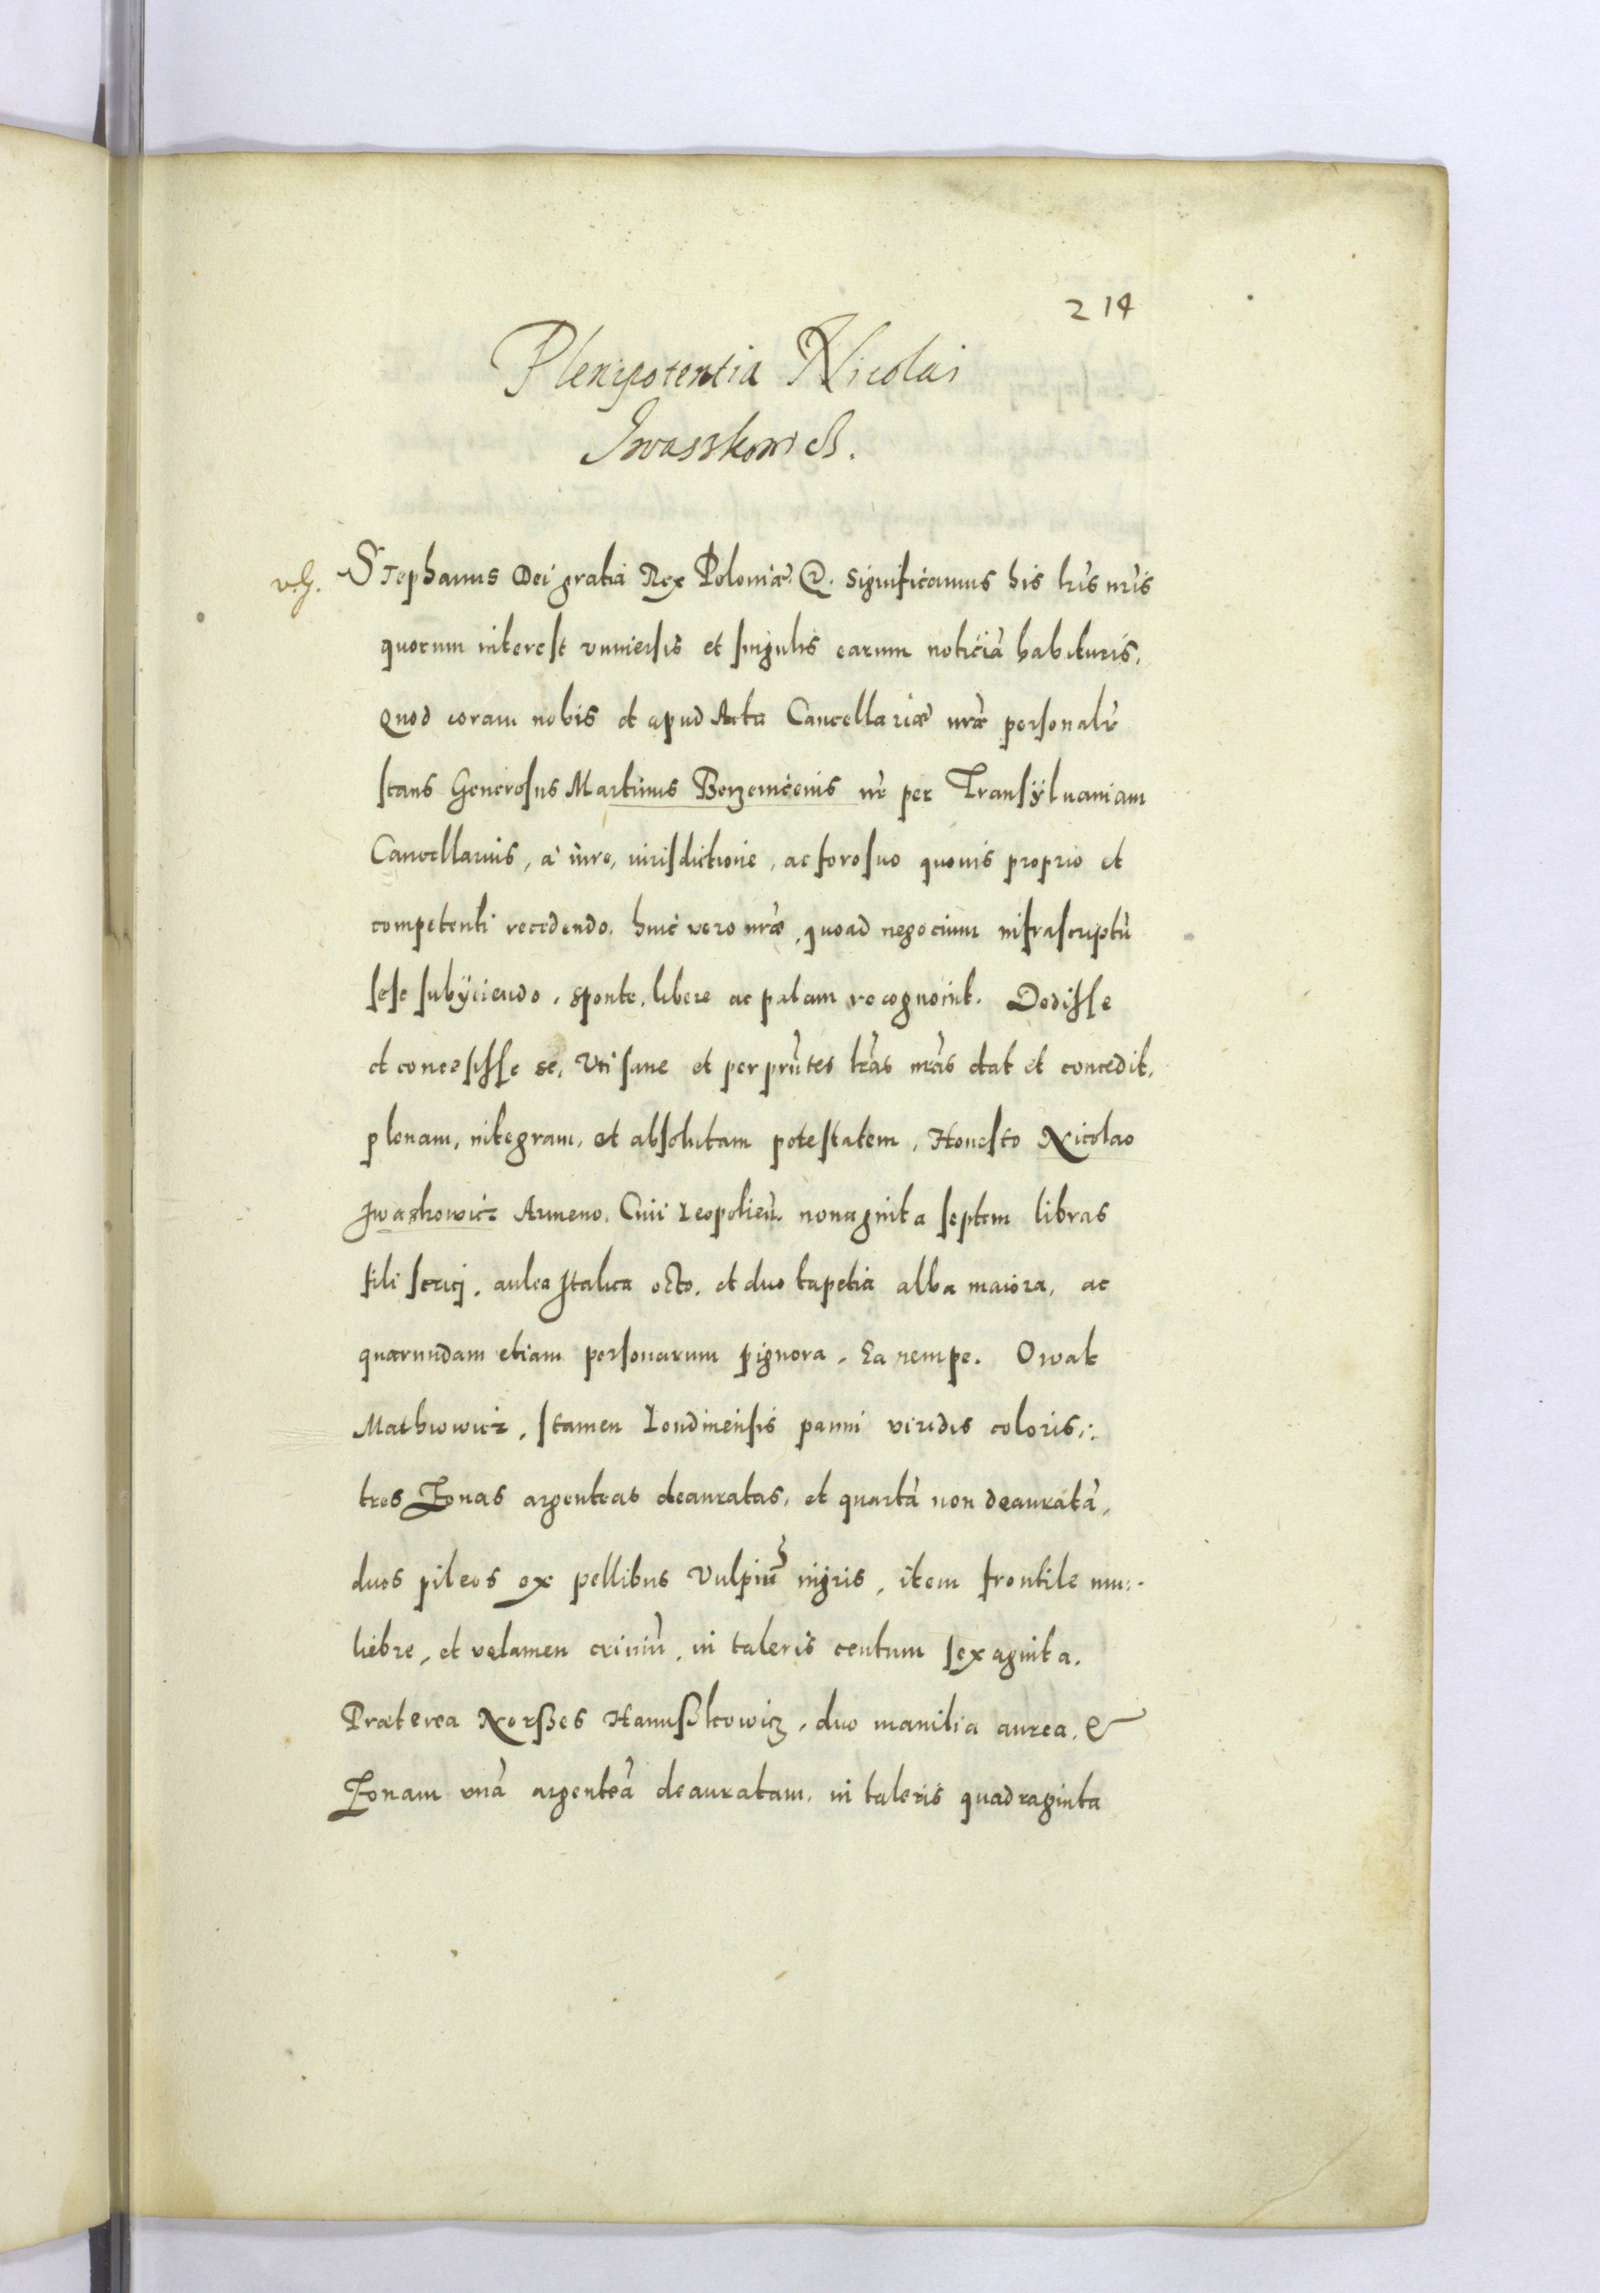 214
Plenipotentia Nicolai
Iwasskowicz.
Stephanus Dei gratia Rex Poloniæ &. Significamus his lr̃is nr̃is
quorum interest vniuersis et singulis earum noticiā habituris.
Quod coram nobis et apud Acta Cancellariæ nr̃æ personalr̃
stans Generosus Martinus Berzeuiceus nr̃ per Transÿluaniam
Cancellarius, à iure, iurisdictione, ac foro suo quouis proprio et
competenti recedendo. huic vero nr̃æ, quoad negocium infrascriptū
sese subÿciendo, sponte, libere ac palam recognouit. Dedisse
et concessisse se, Vti sane et per pñtes lr̃as nr̃as dat et concedit,
plenam, integram, et absolutam potestatem, Honesto Nicolao
Iwaskowicz Armeno, Ciui Leopolieñ. nonaginta septem libras
fili serici, aulea Italica octo, et duo tapetia alba maiora, ac
quarundam etiam personarum pignora, Ea nempe. Owak
Mathiowicz, stamen Londinensis panni viridis coloris,:
tres Zonas argenteas deauratas, et quartā non deauratā,
duos pileos ex pellibus Vulpiū nigris, item frontile mu:
liebre, et velamen criniū, in taleris centum sexaginta.
Præterea Nerßes Hanußkowicz, duo manilia aurea, &
Zonam vnā argenteā deauratam, in taleris quadraginta